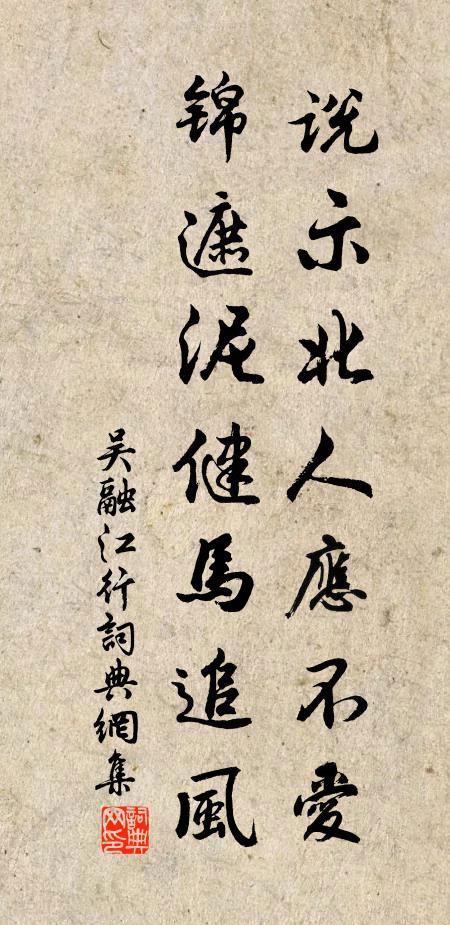 説示北人應不愛
錦遮泥健馬追風
吴融江行詞典網集
詞典
网印